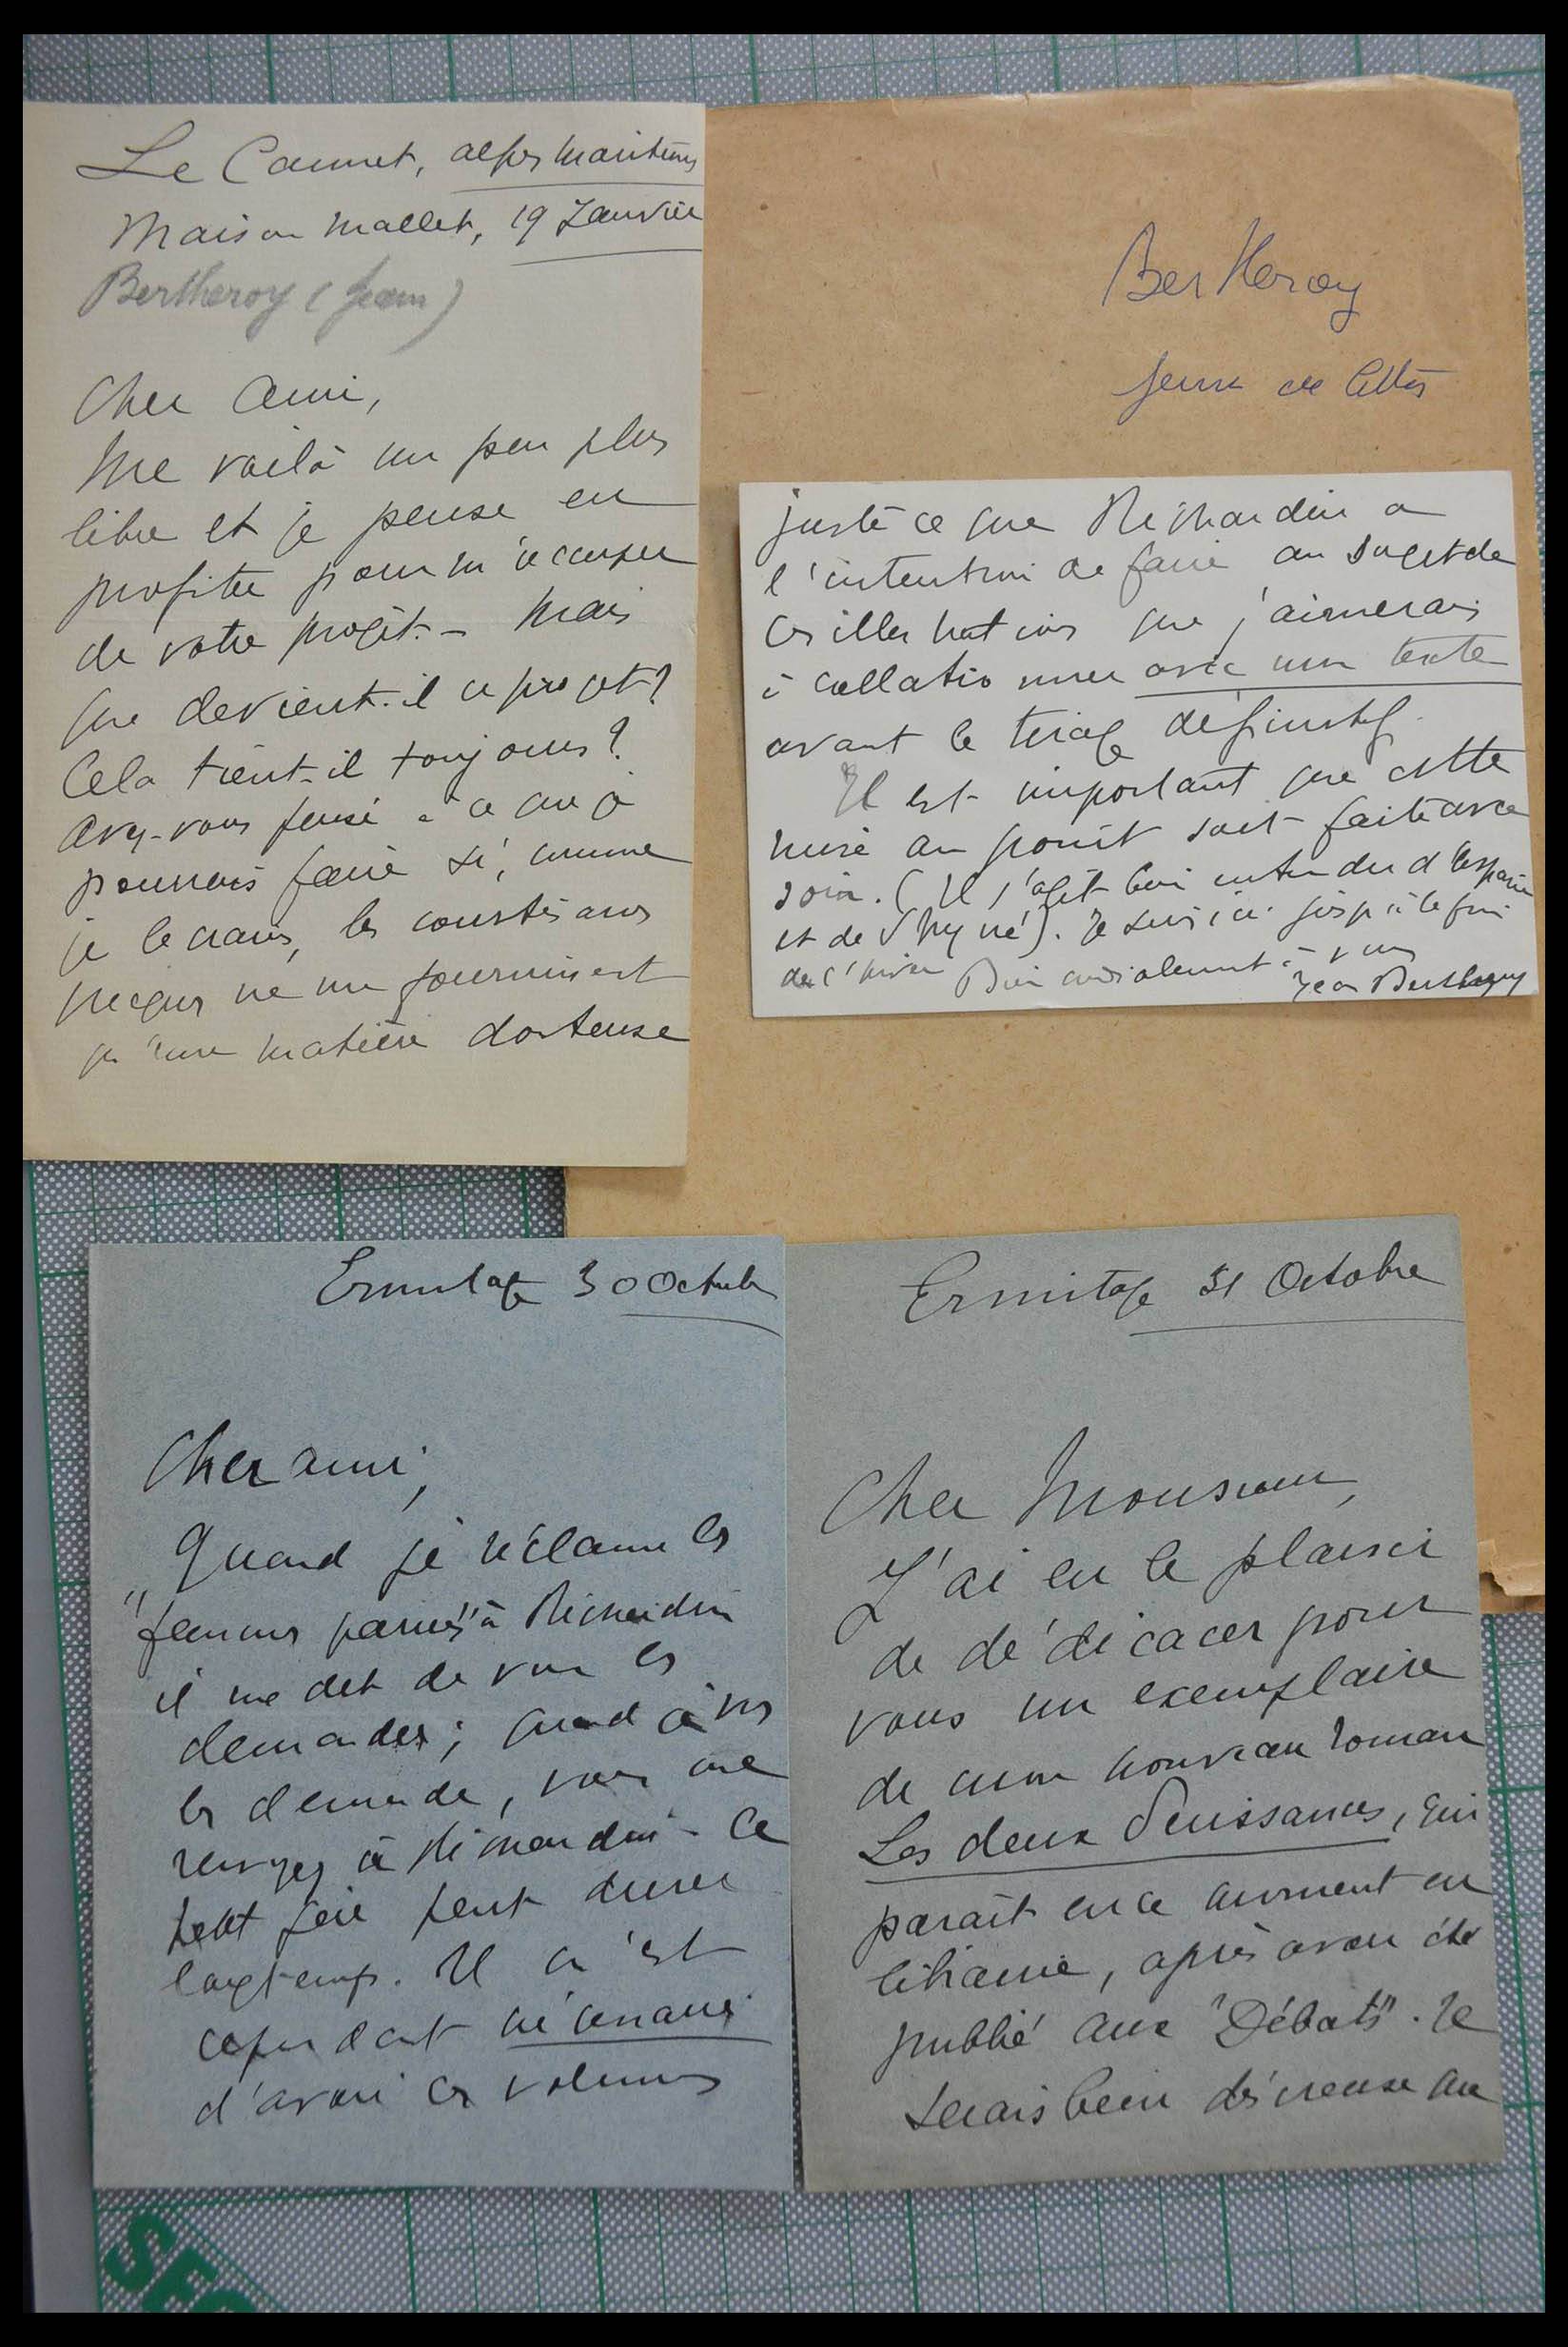 Le Cannet, alpes maritimes
Maison Mallet, 19 Janvier
Bertheroy (Jean)
Cher Ami,
Me voilà un peu plus
libre et je pense en
profiter pour m'occuper
de votre projet. - Mais
que devient-il ce projet?
Cela tient-il toujours?
Avez-vous pensé à ce que je
pourrais faire si, comme
je le crains, les courtisanes
grecques ne me fournissent
qu'une matière douteuse
Bertheroy
femme de lettres
juste ce que Richardin a
l'intention de faire au sujet de
ces illustrations que j'aimerais
à collationner avec mon texte
avant le tirage définitif.
Il est important que cette
mise au point soit faite avec
soin. (Il s'agit bien entendu d'Aspasie
et de Phryné). Je suis ici jusqu'à la fin
de l'hiver Bien cordialement à vous
Jean Bertheroy
Ermitage 30 Octobre
Cher ami,
Quand je réclame les
"femmes parues" à Richardin
il me dit de vous les
demander; quand à vous
les demande, vous me
renvoyez à Richardin - Ce
petit jeu peut durer
longtemps. Il m'est
cependant nécessaire
d'avoir ces volumes
Ermitage 31 Octobre
Cher Monsieur,
J'ai eu le plaisir
de dédicacer pour
vous un exemplaire
de mon nouveau roman
Les deux Puissances, qui
paraît en ce moment en
librairie, après avoir été
publié aux "Débats". Je
serais bien désireuse que
SEC